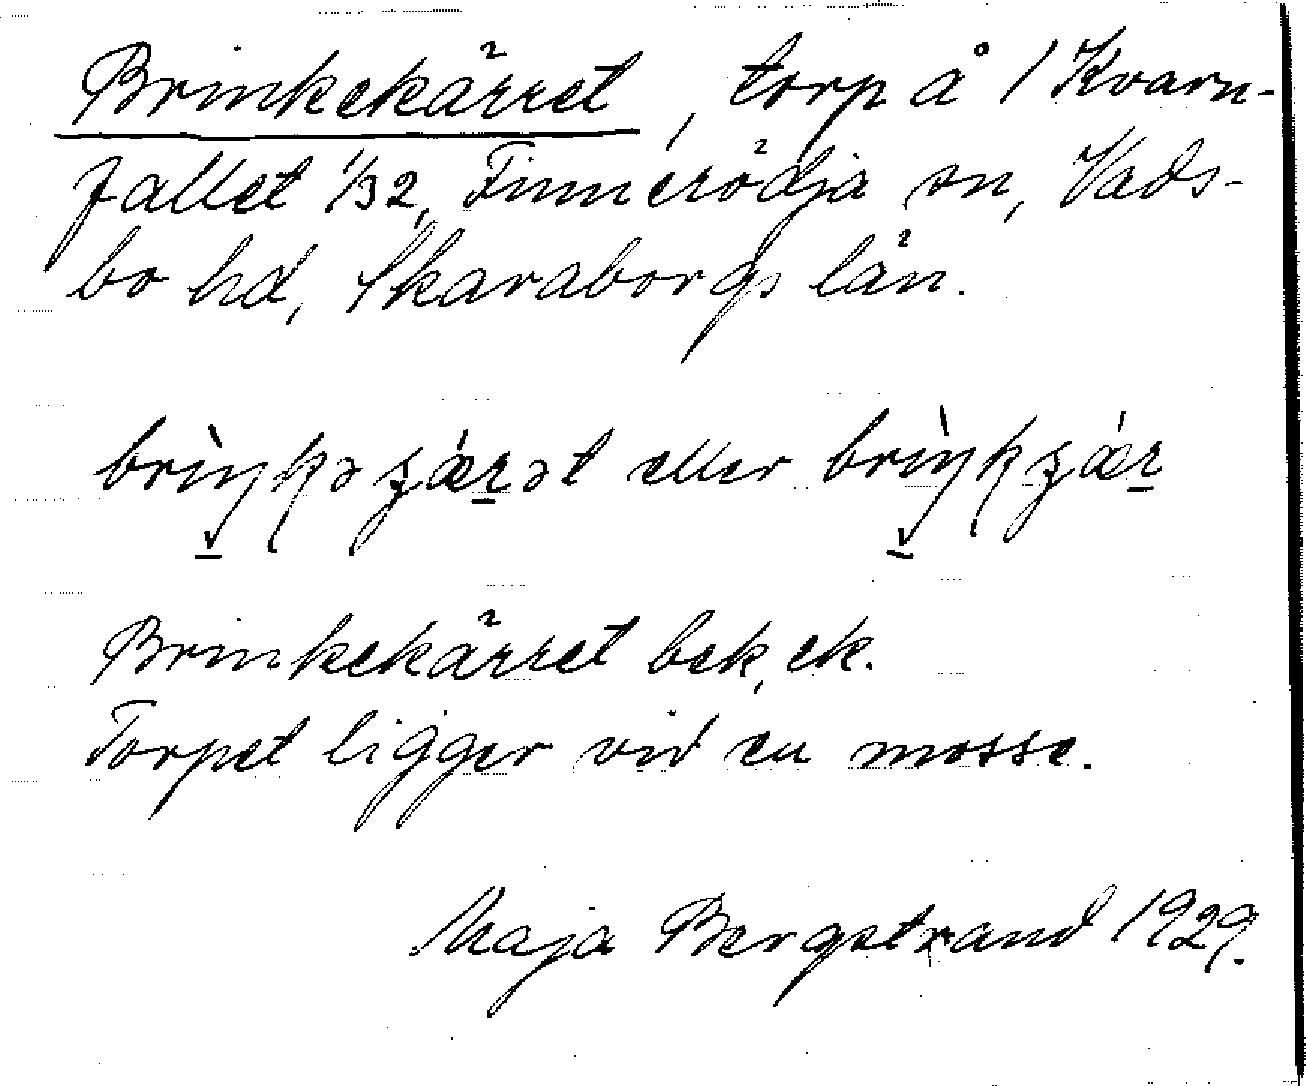 Brinkekärret, torp å 1 Kvarn-
fallet 1/32, Finnerödja sn, Vads-
bo hd, Skaraborgs län.
eller
Brinkekärret bek, ek.
Torpet ligger vid en mosse.
Maja Bergstrand 1929.